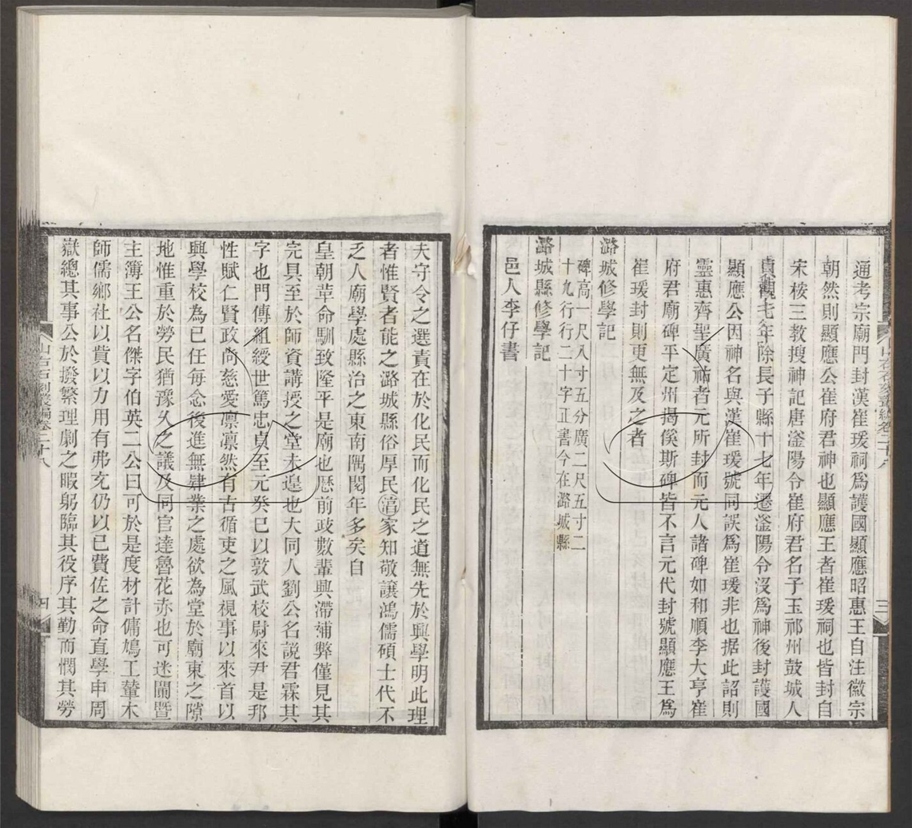 通考宗廟門封漢崔瑗祠爲護國顯應昭惠王自注徽宗
朝然則顯應公崔府君神也顯應王者崔瑗祠也皆封自
宋桉三教搜神記唐滏陽令崔府君名子玉祁州鼓城人
貞觀七年除長子縣十七年遷滏陽令沒爲神後封護國
顯應公因神名與漢崔瑗號同誤爲崔瑗非也据此詔則
靈惠齊聖廣祐者元所封而元人諸碑如和順李大亨崔
府君廟碑平定州揭傒斯碑皆不言元代封號顯應王爲
崔瑗封則更無及之者
潞城修學記
碑高一尺八寸五分廣二尺五寸二
十九行行二十字正書今在潞城縣
潞城縣修學記
邑人李仔書
夫守令之選責在於化民而化民之道無先於興學明此理
者惟賢者能之潞城縣俗厚民淸家知敬讓鴻儒碩士代不
乏人廟學處縣治之東南隅閱年多矣自
皇朝革命馴致隆平是廟也歷前政數輩興滯補弊僅見其
完具至於師資講授之堂未遑也大同人劉公名說君霖其
字也門傳組綬世篤忠貞至元癸巳以敦武校尉來尹是邦
性賦仁賢政尚慈愛凛凛然有古循吏之風視事以來首以
興學校爲已任每念後進無肄業之處欲為堂於廟東之隙
地惟重於勞民猶豫久之議及同官達魯花赤也可迷閫暨
主簿王公名傑字伯英二公曰可於是度材計傭鳩工輦木
師儒鄉社以貲以力用有弗充仍以已費佐之命直學申周
嶽總其事公於撥繁理劇之暇躬臨其役序其勤而憫其勞